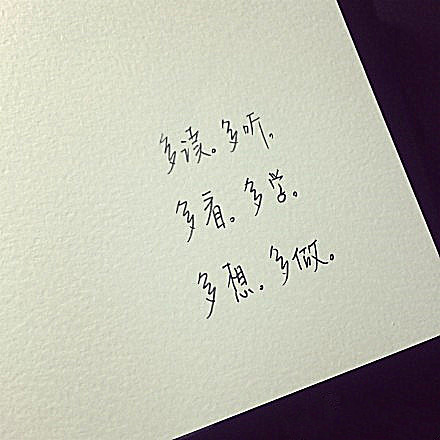 多读。多听。
多看。多学。
多想。多做。